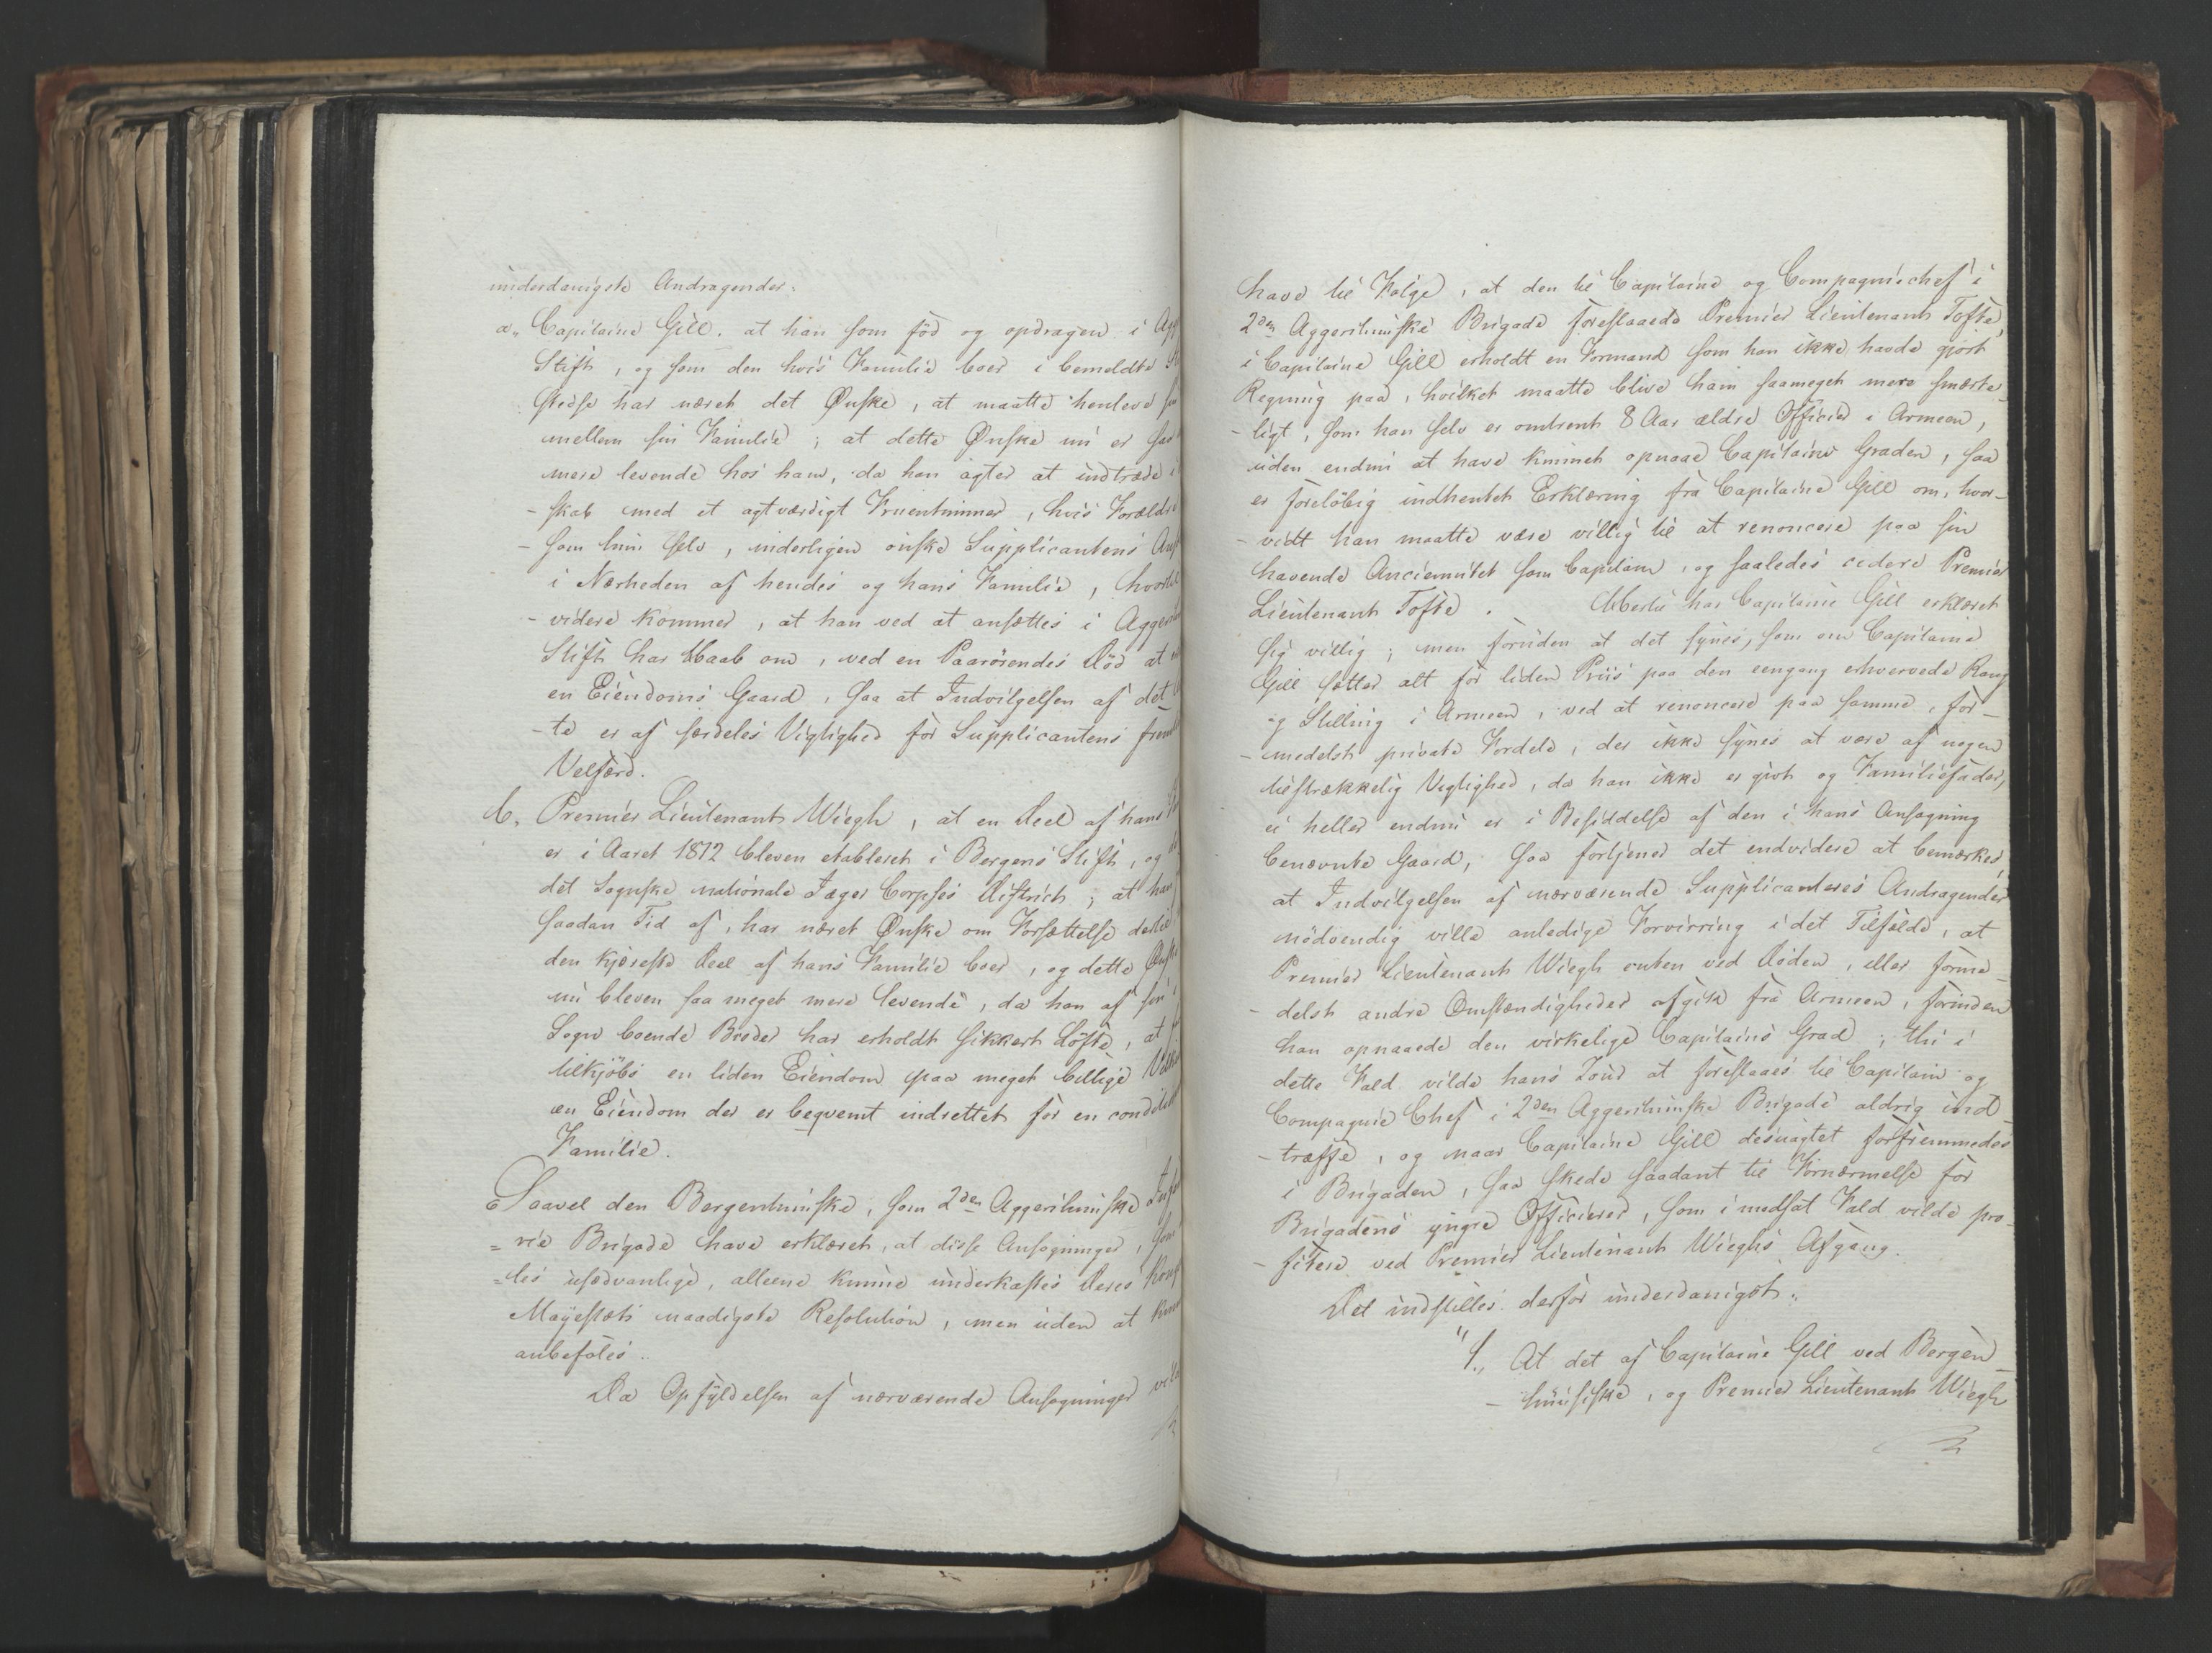 underdanigste Andragender:
a„ Capitaine Gill. at han som föd og opdragen i Agg
Stift, og som den hvis Familie boer i bemeldte St
stedse har næret det Ønske, at maatte henleve sin
mellem sin Familie; at dette Ønske nu er saa
mere levende hos ham, da han agter at indtræde i
-skab med et agtværdigt Fruentimmer, hvis Forældre
-som hun selv, inderligen önske Supplicantens Ans
i Nærheden af hendes og hans Familie, hvortil
-videre kommer, at han ved at ansættes i Aggers
Stift har Haab om, ved en Paarörendes Död at
en Eiendoms Gaard, saa at Indvilgelsen af det
-te er af særdeles Vigtighed for Supplicantens frem
Velfærd.
b, Premier Lieutenant Wiegh, at en Deel af hans
er i Aaret 1812 bleven etableret i Bergens Stift, og
det Sognske nationale Jæger Corpses District; at han
saadan Tid af, har næret Ønske om Forsættelse dertil
den kjæreste Deel af hans Familie boer, og dette Ønske
nu bleven saa meget mere levende, da han af sin i
Sogn boende Broder har erholdt sikkert Löfte, at
tilkjöbs en liden Eiendom paa meget billige Vilkaa
en Eiendom der er beqvemt indrettet for en condition
Familie.
Saavel den Bergenhuusske, som 2den Aggershuusske Infan
=rie Brigade have erklæret, at disse Ansøgninger, som
=les usædvanlige, alleene kunne underkastes Deres Kong
Mayestæts naadigste Resolution, men uden at kunne
anbefales.
Da Opfyldelsen af nærværende Ansøgninger vilde
have til Følge, at den til Capitaine og Compagniechef i
2den Aggershuusske Brigade foreslaaede Premier Lieutenant Tofte,
i Capitaine Gill erholdt en Formand som han ikke havde gjort
Regning paa, hvilket maatte blive ham saameget mere smerte-
-ligt, som han selv er omtrent 8 Aar ældre Officier i Armeen,
uden endnu at have kunnet opnaae Capitains Graden, saa
er foreløbig indhentet Erklæring fra Capitaine Gill om, hvor-
-vidt han maatte være villig til at renoncere paa sin
havende Anciennitet som Capitain, og saaledes cedere Premier
Lieutenant Tofte. Hertil har Capitaine Gill erklæret
sig villig; men foruden at det synes, som om Capitaine
Gill sætter alt for liden Priis paa den eengang erhvervede Rang
og Stilling i Armeen, ved at renoncere paa samme, for-
-medelst private Fordele, der ikke synes at være af nogen
tilstrækkelig Vigtighed, da han ikke er givt og Familiefader,
ei heller endnu er i Besiddelse af den i hans Ansøgning
benævnte Gaard, saa fortjener det endvidere at bemærkes,
at Indvilgelsen af nærværende Supplicanteres Andragender
nödvendig ville anledige Forvirring i det Tilfælde, at
Premier Lieutenant Wiegh enten ved Döden, eller forme-
-delst andre Omstændigheder afgik fra Armeen, forinden
han opnaaede den virkelige Capitains Grad; thi i
dette Fald vilde hans Tour at foreslaaes til Capitain og
Compagnie Chef i 2den Aggershuusske Brigade aldrig ind-
-træffe, og naar Capitaine Gill desuagtet forfremmedes
i Brigaden, saa skede saadant til Fornærmelse for
Brigadens yngre Officierer, som i modsat Fald vilde pro-
-fitere ved Premier Lieutenant Wieghs Afgang.
Det indstilles derfor underdanigst:
"1., At det af Capitaine Gill ved Bergen-
-huusiske, og Premier Lieutenant Wiegh